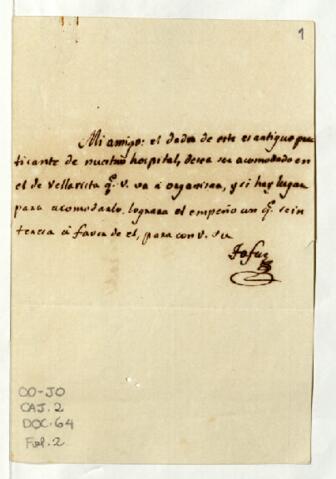 1
Mi amigo: el dador de este es antiguo prac
ticante de nuestro hospital, desea ser acomodado en
el de Vellavista q.e v. va á organisar, y si hay lugar
para acomodarlo lograra el empeño con q.e se in
teresa á favor de el, para con v. su
OO-JO
CAJ. 2
DOC. 64
Fol. 2